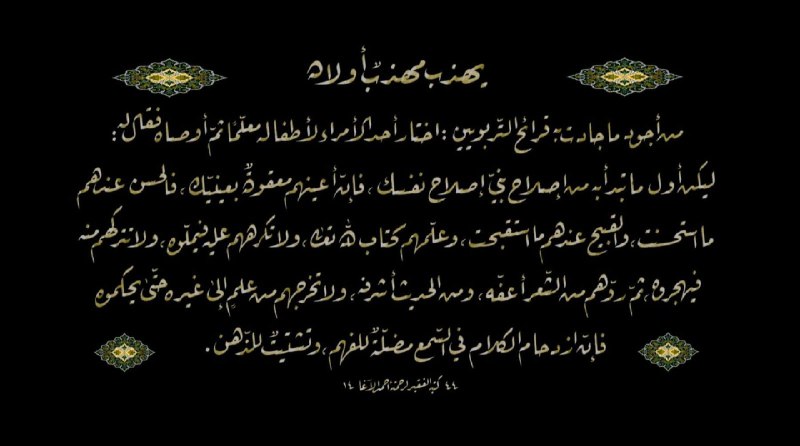 يهذب مهذبٌ أولاه
من أجود ما جادت به قرائح التّربويين : اختار أحد الأمراء لأطفاله معلّمًا ثمّ أوصاه فقال له :
ليكن أول ما تبدأ به من إصلاح بنيّ إصلاح نفسك ، فإنّ أعينهم معقودةٌ بعينيك ، فالحسن عندهم
ما استحسنت ، والقبيح عندهم ما استقبحت ، وعلّمهم كتاب الله تعالى ، ولا تكرههم عليه فيملّوه ، ولا تتركهم منه
فيهجروه ، ثمّ ردّهم من الشّعر أعفّه ، ومن الحديث أشرفه ، ولا تخرجهم من علمٍ إلى غيره حتّى يحكموه
فإنّ ازدحام الكلام في السّمع مضلّةٌ للفهم ، وتشتيتٌ للذّهن .
كتبه الفقير لرحمة أحمد الآغا ١٤٤٤